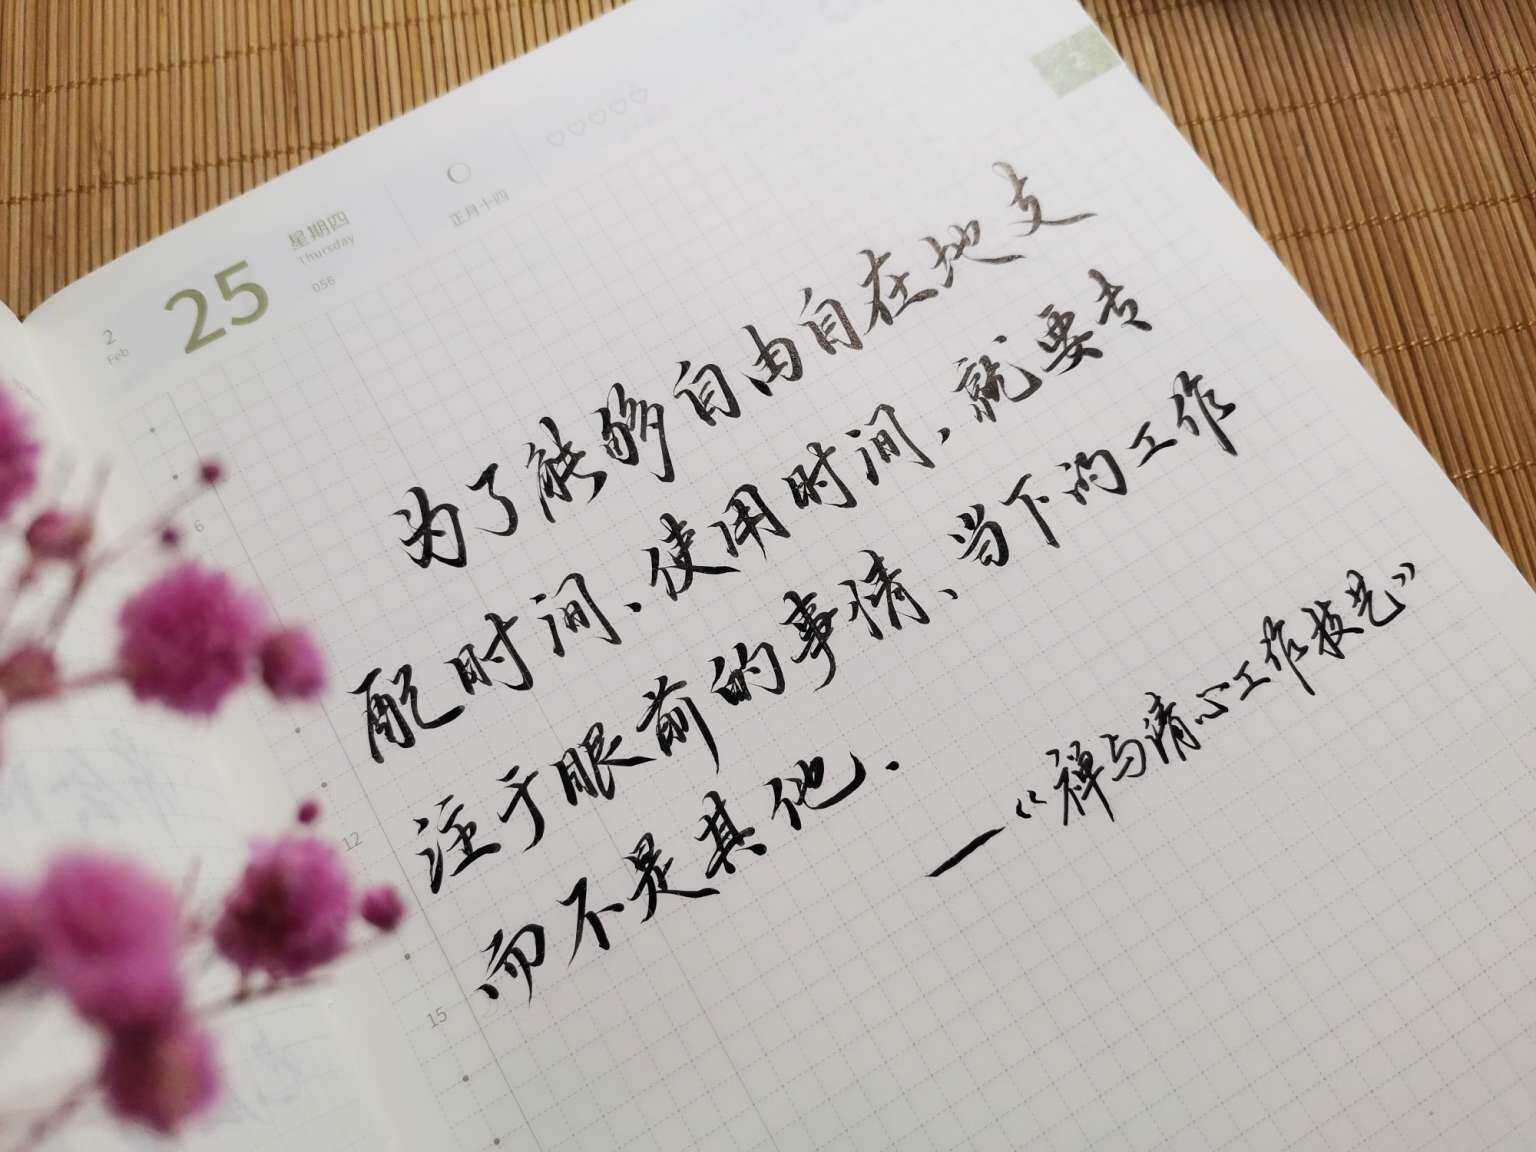 2
2
Feb
25
星期四
Thursday
056
正月十四
为了能够自由自在地支
配时间、使用时间，就要专
注于眼前的事情、当下的工作
而不是其他.
—《禅与清心工作技艺》
6
12
15